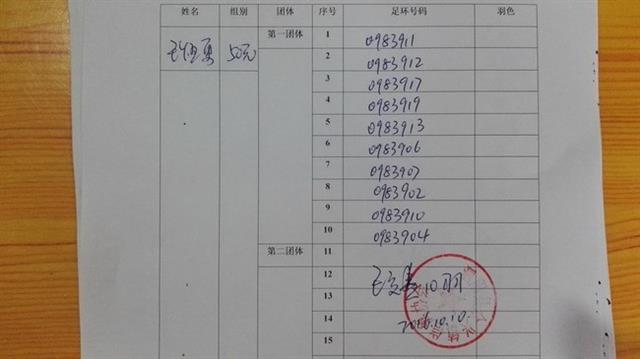 姓名 组别 团体 序号 足环号码 羽色
50元 第一团体 1 0983911
2 0983912
3 0983917
4 0983919
5 0983913
6 0983906
7 0983907
8 0983902
9 0983910
10 0983904
第二团体 11
12 10羽
13
14 2016.10.10.
15